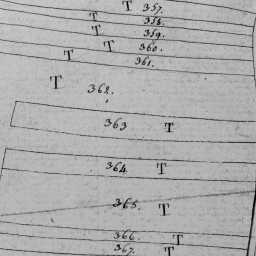 T 357.
T 358.
T 359.
T 360.
T 361.
T 362.
363 T
364 T
365. T
366. T
367. T